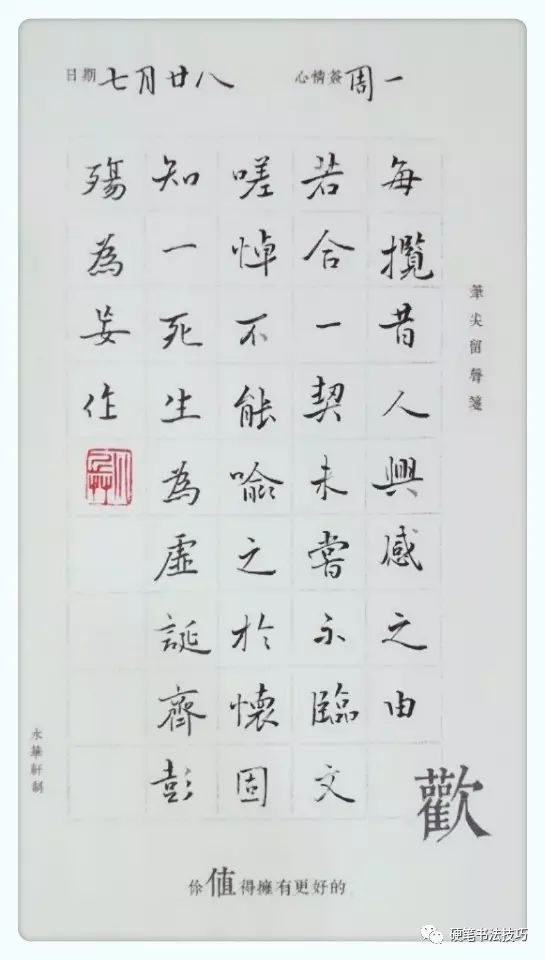 日期 七月廿八
心情簽 周一
每攬昔人興感之由
若合一契未嘗不臨文
嗟悼不能喻之於懷固
知一死生為虛誕齊彭
殤為妄作
筆尖留聲箋
永華軒制
歡
你值得擁有更好的
硬笔书法技巧